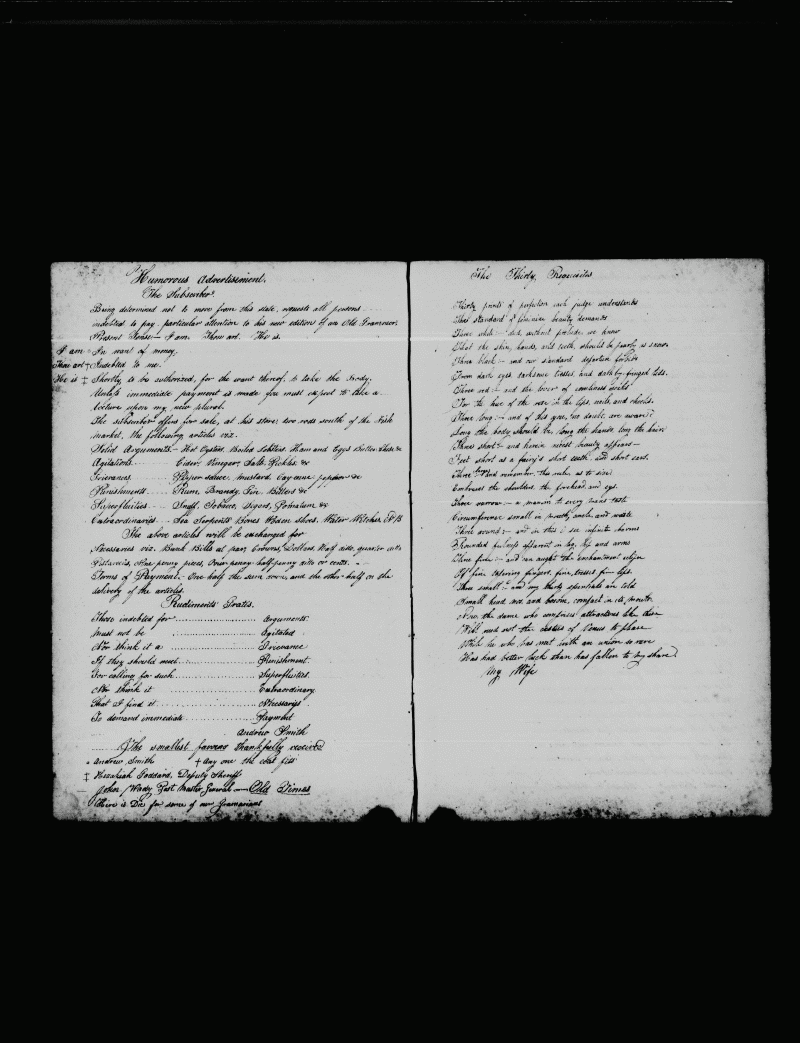 Humorous Advertisement.
The Subscriber
Being determined not to move from this state, requests all persons
indebted to pay particular attention to his new edition of an Old Grammer.
Present Tense— I am. Thou art. He is.
I am * In want of money.
Thou art † Indebted to me.
He is ‡ Shortly to be authorized, for the want thereof, to take the Body.
Unless immediate payment is made you must expect to take a
lecture upon my new plural.
The subscriber offers for sale, at his store, two rods south of the Fish
market, the following articles viz.
Solid Arguments.— Hot Oysters, Boiled Lobsters, Ham and Eggs Butter Cheese &c
Agitations...... Cider, Vinegar, Salt, Pickles &c
Grievances.... Pepper sauce, mustard, Cayenne pepper &c
Punishments.... Rum, Brandy, Gin, Bitters &c
Superfluities... Snuff, Tobacco, Segars, Pomatum &c
Extraordinaries... Sea Serpents Bones Woden shoes, Water Witches
The above articles will be exchanged for
Necessaries viz. Bank Bills at par, Crowns, Dollars, Half
Pistareens, Nine penny pieces, Four pence half penny or cents.
Terms of Payment.— One half the sum down, and the other half on the
delivery of the articles.
Rudiments Gratis.
Those indebted for .................... Arguments.
Must not be .................... Agitated
Nor think it a .................... Grievance
If they should meet .................... Punishment.
For calling for such .................... Superfluities.
Nor think it .................... Extraordinary.
That I find it .................... Necessaries
To demand immediate .................... Payment
Andrew Smith
...... The smallest favours thankfully received
* Andrew Smith † Any one the coat fits
‡ Hezekiah Goddard, Deputy Sheriff
John Wady Post Master General — Old Times
There is Die for some of our Gramarians
The Thirty Requisites
Thirty points of perfection each judge understands
The standard of feminine beauty demands
Three white:— and, without prelude, we know
That the skin, hands, and teeth, should be pearly as snow
Three black:— and our standard departure forbids
From dark eyes, darksome tresses, and darkly-fringed lids.
Three red:— and the lover of comeliness seeks
For the hue of the rose in the lips, nails and cheeks.
Three long:— and of this you, no doubt, are aware?
Long the body should be, long the hands, long the hair.
Three short:— and herein nicest beauty appears—
Feet short as a fairy's short teeth, and short ears.
Three large and remember this rule, as to size
Embraces the shoulders, the forehead, and eyes.
Three narrow:— a maxim to every mans taste
Circumference small in mouth, ancle, and waste
Three round:— and in this I see infinite charms
Rounded fulness apparent in leg, hip and arms
Three fine:— and can aught the enchantment eclipse
Of fine tapering fingers, fine tresses fine lips.
Three small:— and my thirty essentials are told
Small head nose and bosom, compact in its mould
Now the dame who comprises attractions like these
Will need not the cestus of Venus to please
While he who has met with an union so rare
Has had better luck than has fallen to my share
My Wife